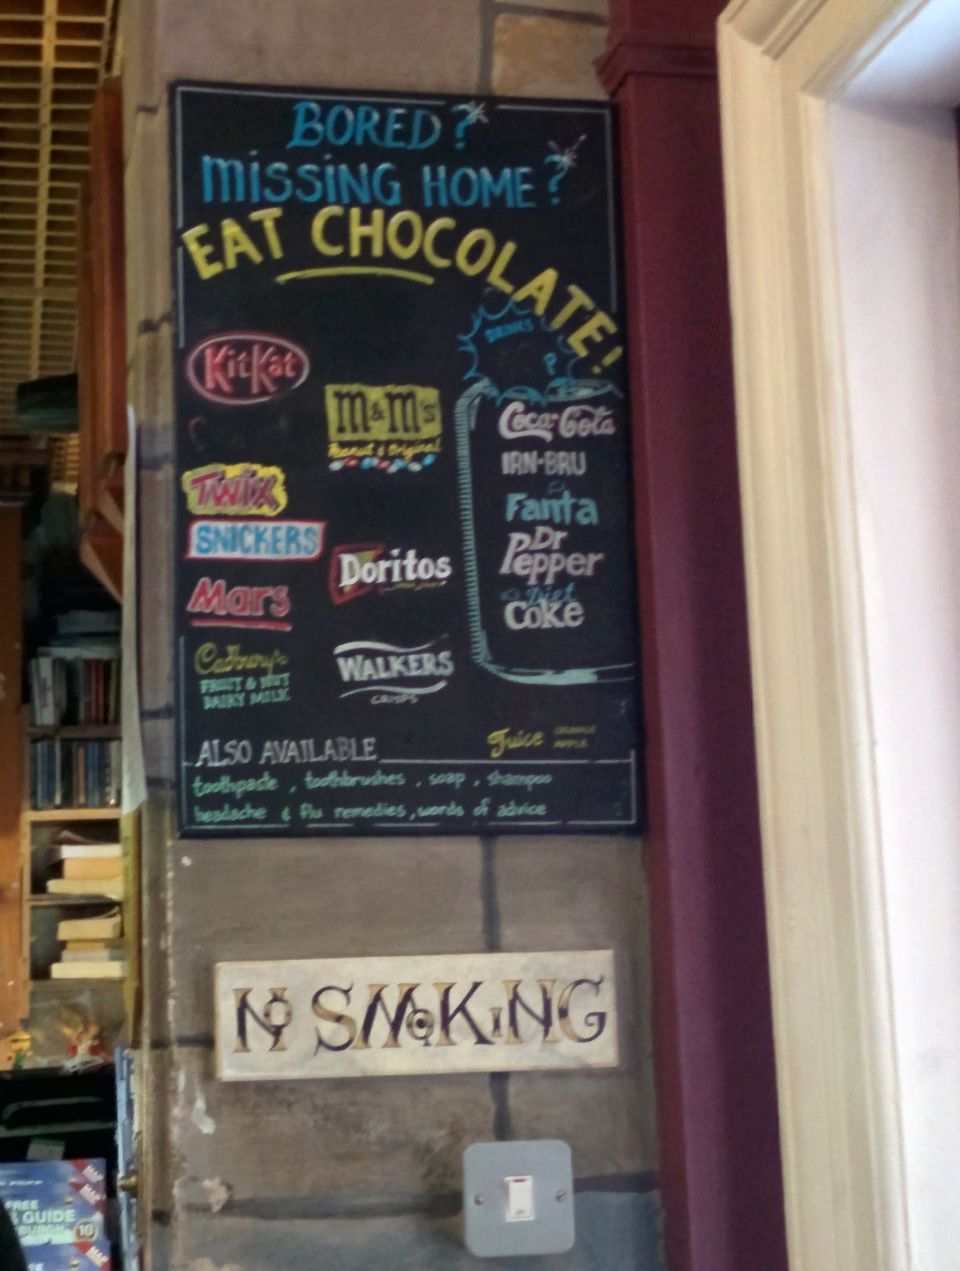 BORED?
MISSING HOME?
EAT CHOCOLATE!
KitKat
M&M's
Peanut & Original
Twix
SNICKERS
Mars
Cadbury's
FRUIT & NUT
DAIRY MILK
Doritos
WALKERS
CRISPS
DRINKS
?
Coca-Cola
IRN-BRU
Fanta
Dr
Pepper
Diet
Coke
Juice ORANGE
APPLE
ALSO AVAILABLE
toothpaste, toothbrushes, soap, shampoo
headache & flu remedies, words of advice
NO SMOKING
FREE
GUIDE
10